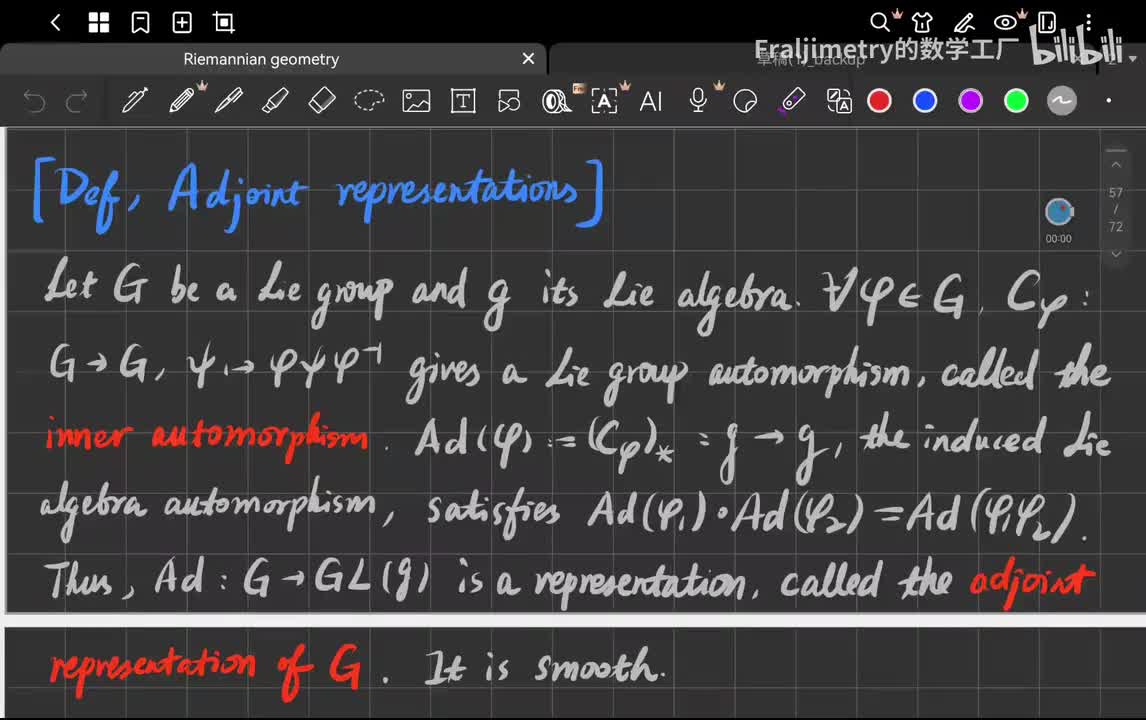 Fraljimetry的数学工厂 bilibili
Riemannian geometry
草稿(1)_backup
Free
T
A
AI
A
[Def, Adjoint representations]
57
/
72
00:00
Let G be a Lie group and g its Lie algebra. ∀φ∈G, C_φ:
G→G, ψ↦φψφ⁻¹ gives a Lie group automorphism, called the
inner automorphism. Ad(φ):=(C_φ)_*:g→g, the induced Lie
algebra automorphism, satisfies Ad(φ₁)∘Ad(φ₂)=Ad(φ₁φ₂).
Thus, Ad: G→GL(g) is a representation, called the adjoint
representation of G. It is smooth.